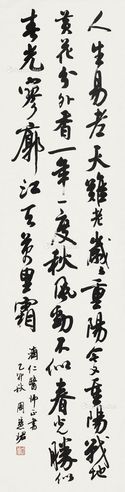 人生易老天難老歲〻重陽今又重陽戰地
黄花分外香一年一度秋風勁不似春光勝似
春光寥廓江天萬里霜
仁醫師正書
乙卯秋 周慧珺